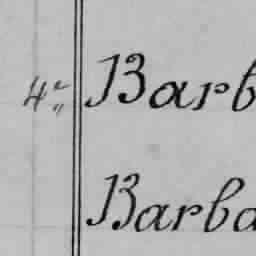 4" Barb
Barba